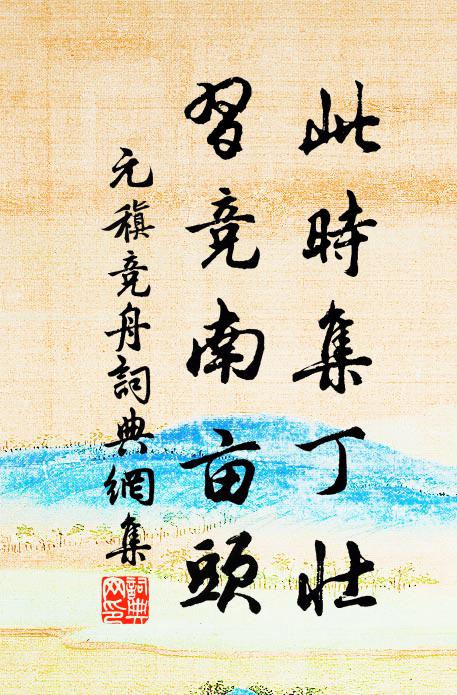 此時集丁壯
習竞南亩頭
元稹竞舟詞典網集
詞典